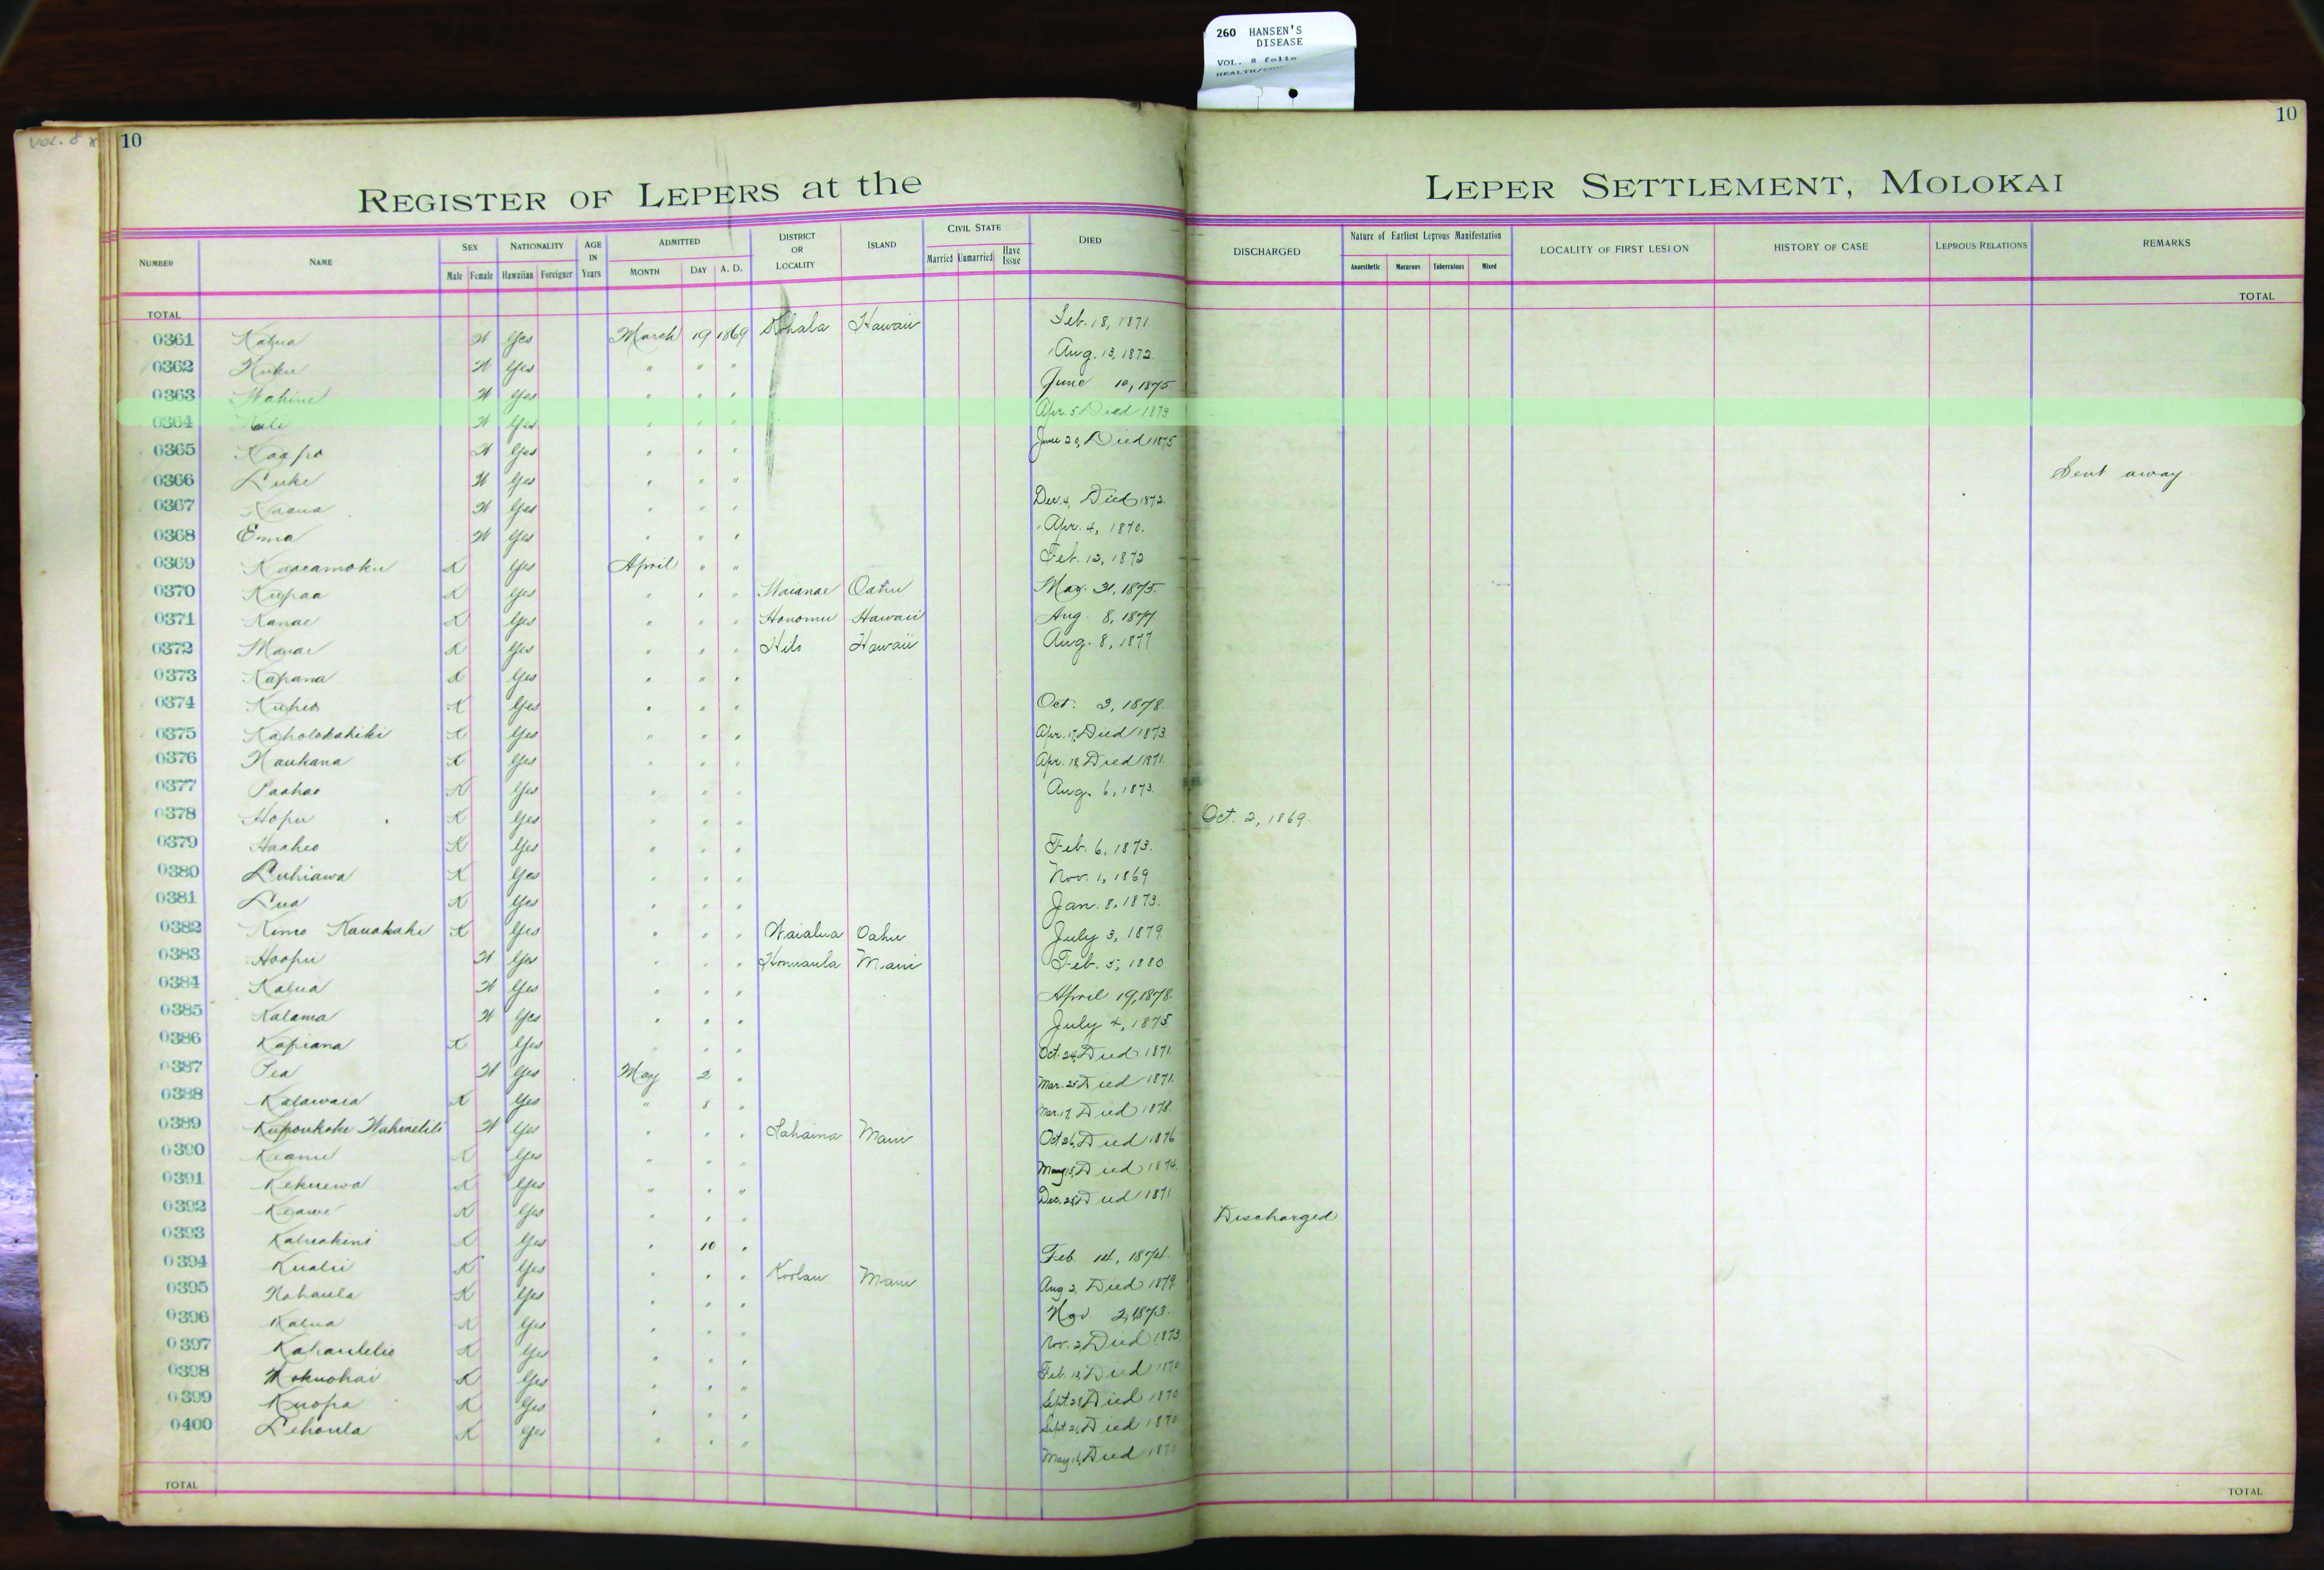 260 HANSEN'S
DISEASE
VOL. 8 folio
Vol. 8
10
10
REGISTER OF LEPERS at the LEPER SETTLEMENT, MOLOKAI
NUMBER NAME SEX NATIONALITY AGE IN Years ADMITTED DISTRICT OR LOCALITY ISLAND CIVIL STATE DIED DISCHARGED Nature of Earliest Leprous Manifestation LOCALITY OF FIRST LESION HISTORY OF CASE LEPROUS RELATIONS REMARKS
Male Female Hawaiian Foreigner MONTH DAY A. D. Married Unmarried Have Issue Anaesthetic Macurous Tuberculous Mixed
TOTAL TOTAL
0361 Kalua W Yes March 19 1869 Kohala Hawaii Feb. 18, 1871
0362 Kuku W Yes " " " Aug. 13, 1872.
0363 Wahine W Yes " " " June 10, 1875
0364 W Yes " " " Apr. 5 Died 1873
0365 Kaapo W Yes " " " June 20, Died 1875
0366 Luke W Yes " " " Sent away
0367 W Yes " " " Dec. 4, Died 1872.
0368 Emma W Yes " " " Apr. 4, 1870.
0369 Kaaeamoku K Yes April " " Feb. 12, 1872
0370 Kupaa K Yes " " " Waianae Oahu May. 31, 1875.
0371 Kanae K Yes " " " Honomu Hawaii Aug. 8, 1877
0372 K Yes " " " Hilo Hawaii Aug. 8, 1877
0373 Kapana K Yes " " "
0374 Kuheo K Yes " " " Oct. 3, 1878.
0375 Kaholokahiki K Yes " " " Apr. 17, Died 1873.
0376 Naukana K Yes " " " Apr. 18 Died 1871.
0377 Paahao K Yes " " " Aug. 6, 1873.
0378 Hopu K Yes " " " Oct. 2, 1869.
0379 Haaheo K Yes " " " Feb. 6, 1873.
0380 Luhiawa K Yes " " " Nov. 1, 1869
0381 Lua K Yes " " " Jan. 8, 1873.
0382 Kimo Kauakahi K Yes " " " Waialua Oahu July 3, 1879.
0383 Hoopii W Yes " " " Honuaula Maui Feb. 5, 1880
0384 Kalua W Yes " " " April 19, 1878.
0385 Kalama W Yes " " " July 4, 1875
0386 Kapiana K Yes " " " Oct. 24, Died 1871.
0387 Pea W Yes May 2 " Mar. 25 Died 1871.
0388 Kalawaia K Yes " 8 " Mar. 17, Died 1878.
0389 W Yes " " " Lahaina Maui Oct 26, Died 1876
0390 Keanu K Yes " " " May 15, Died 1874.
0391 Kekuewa K Yes " " " Dec. Died 1871
0392 Keawe K Yes " " " Discharged
0393 Kaluakini K Yes " 10 " Feb. 14, 1874.
0394 Kualii K Yes " " " Koolau Maui Aug 2, Died 1879.
0395 Nohaula K Yes " " " Nov 2, 1873.
0396 Kalua K Yes " " " Nov. 2, Died 1873
0397 K Yes " " " Feb. 18, Died 1870
0398 Mokuohai K Yes " " " Sept. Died 1870
0399 Kuopa K Yes " " " Sept. Died 1870
0400 Lehoula K Yes " " " May 16, Died 1870
TOTAL TOTAL